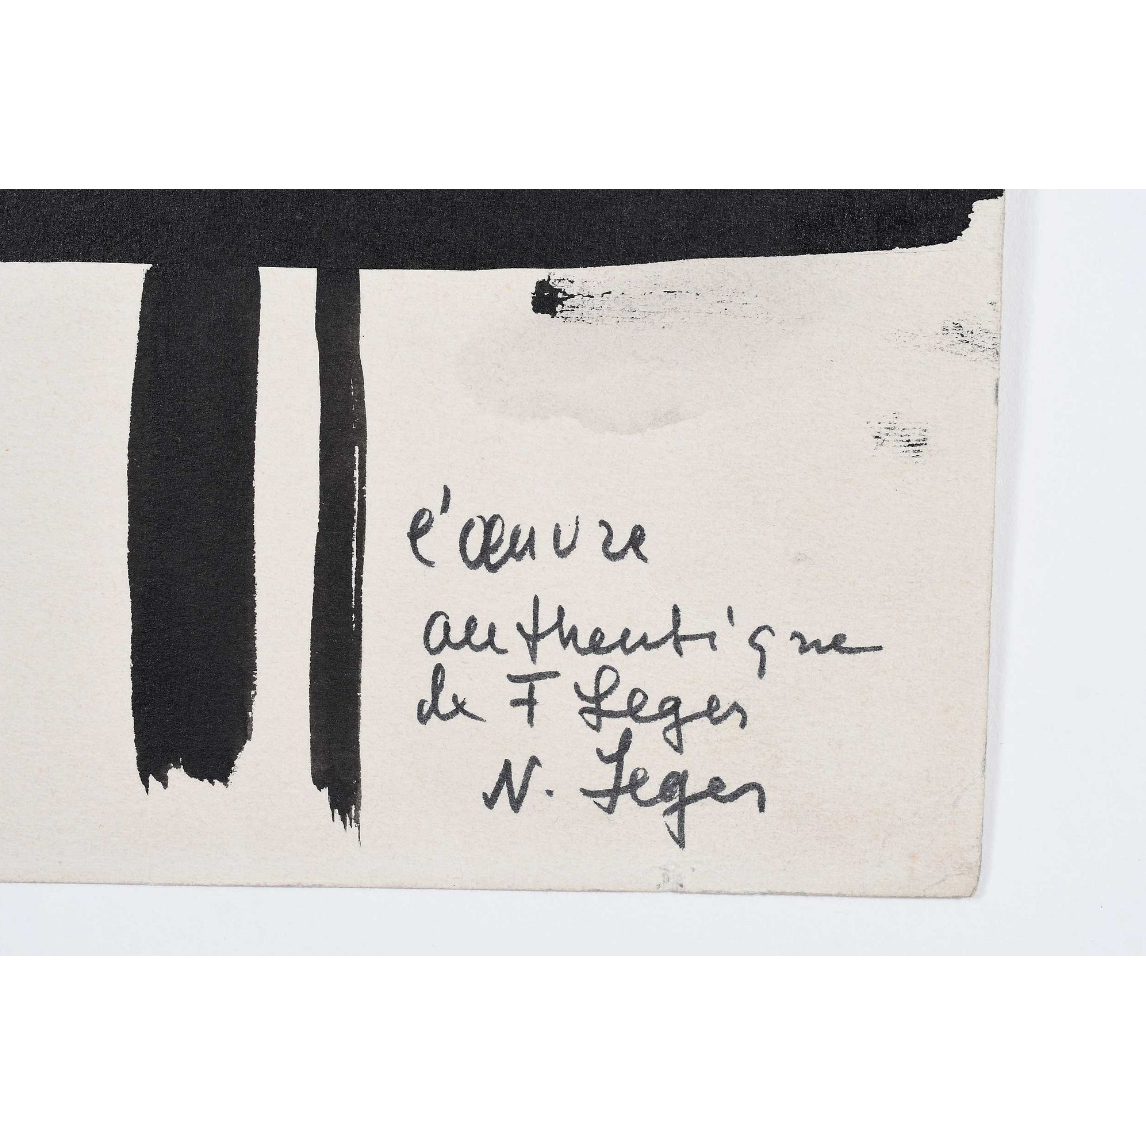 l'œuvre
authentique
de F Leger
N. Leger